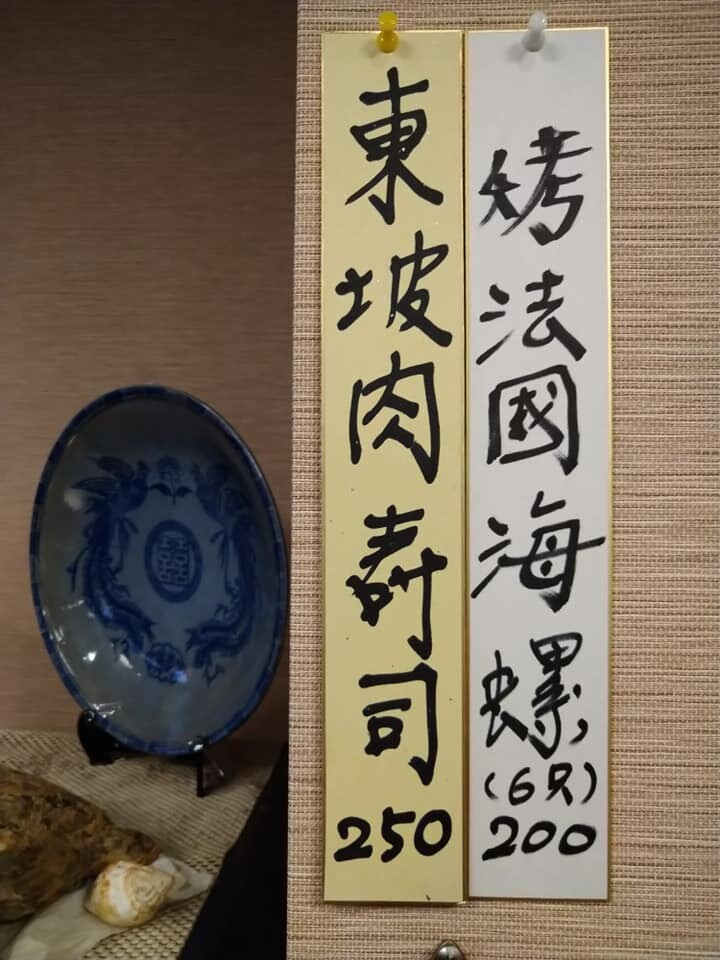 烤法國海螺
(6只)
200
東坡肉壽司
250
囍